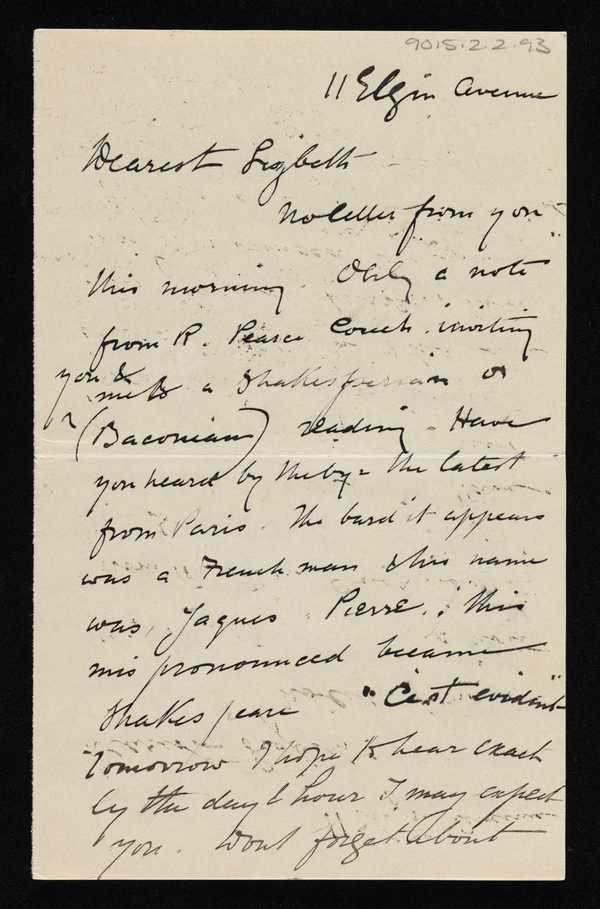 9015.2.2.93
11 Elgin Avenue
Dearest Lizbeth
No letter from you
this morning. Only a note
from R. Pearce Couch inviting
you &
me to a Shakesperian or
(Baconian) reading. Have
you heard by the bye the latest
from Paris. The bard it appears
was a French man & his name
was, Jaques Pierre; this
mis pronounced became
Shakespeare "C'est evidant"
Tomorrow I hope to hear exact
ly the day & hour I may expect
you. Dont forget about